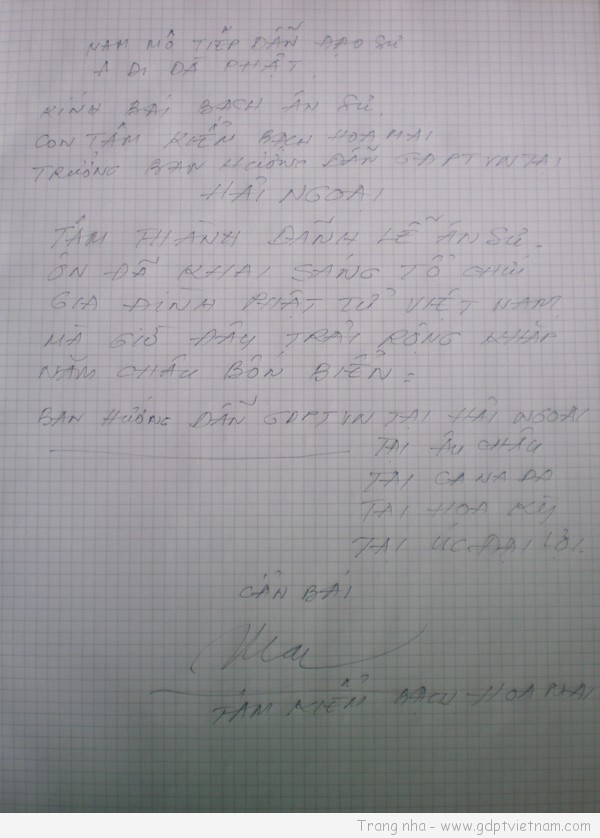 NAM MÔ TIẾP DẪN ĐẠO SƯ
A DI ĐÀ PHẬT.
KÍNH BÁI BẠCH ÂN SƯ.
CON TÂM KIỂM BẠCH HOA MAI
TRƯỞNG BAN HƯỚNG DẪN GĐPTVN TẠI
HẢI NGOẠI
TÂM THÀNH ĐẢNH LỄ ÂN SƯ.
ÔN ĐÃ KHAI SÁNG TỔ CHỨC
GIA ĐÌNH PHẬT TỬ VIỆT NAM
MÀ GIỜ ĐÂY TRẢI RỘNG KHẮP
NĂM CHÂU BỐN BIỂN =
BAN HƯỚNG DẪN GĐPTVN TẠI HẢI NGOẠI
TẠI ÂU CHÂU
TẠI CANADA
TẠI HOA KỲ
TẠI ÚC ĐẠI LỢI.
CẨN BÁI
Mai
TÂM KIỂM BẠCH HOA MAI
Trang nha - www.gdptvietnam.com